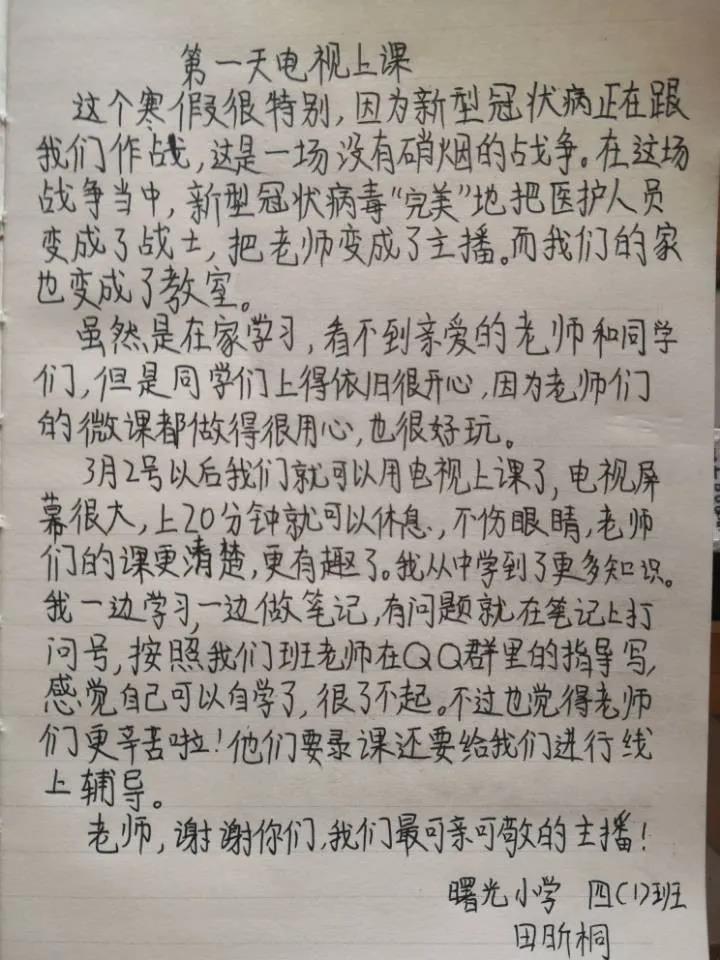 第一天电视上课
这个寒假很特别,因为新型冠状病正在跟
我们作战,这是一场没有硝烟的战争。在这场
战争当中,新型冠状病毒“完美”地把医护人员
变成了战士,把老师变成了主播。而我们的家
也变成了教室。
虽然是在家学习,看不到亲爱的老师和同学
们,但是同学们上得依旧很开心,因为老师们
的微课都做得很用心,也很好玩。
3月2号以后我们就可以用电视上课了,电视屏
幕很大,上20分钟就可以休息,不伤眼睛,老师
们的课更清楚,更有趣了。我从中学到了更多知识。
我一边学习,一边做笔记,有问题就在笔记上打
问号,按照我们班老师在QQ群里的指导写,
感觉自己可以自学了,很了不起。不过也觉得老师
们更辛苦啦!他们要录课还要给我们进行线
上辅导。
老师,谢谢你们,我们最可亲可敬的主播!
曙光小学 四(1)班
田昕桐